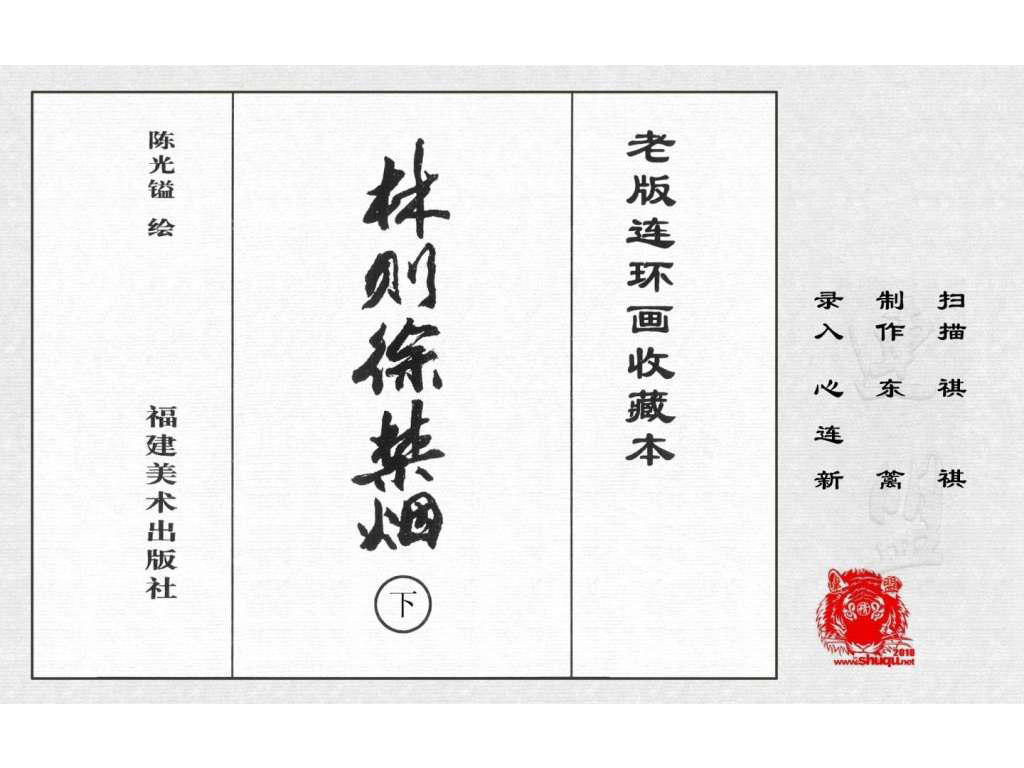 扫描 祺祺
制作 东篱
录入 心连新
老版连环画收藏本
林则徐禁烟
下
陈光镒 绘
福建美术出版社
盟
2010
www.shuqu.net